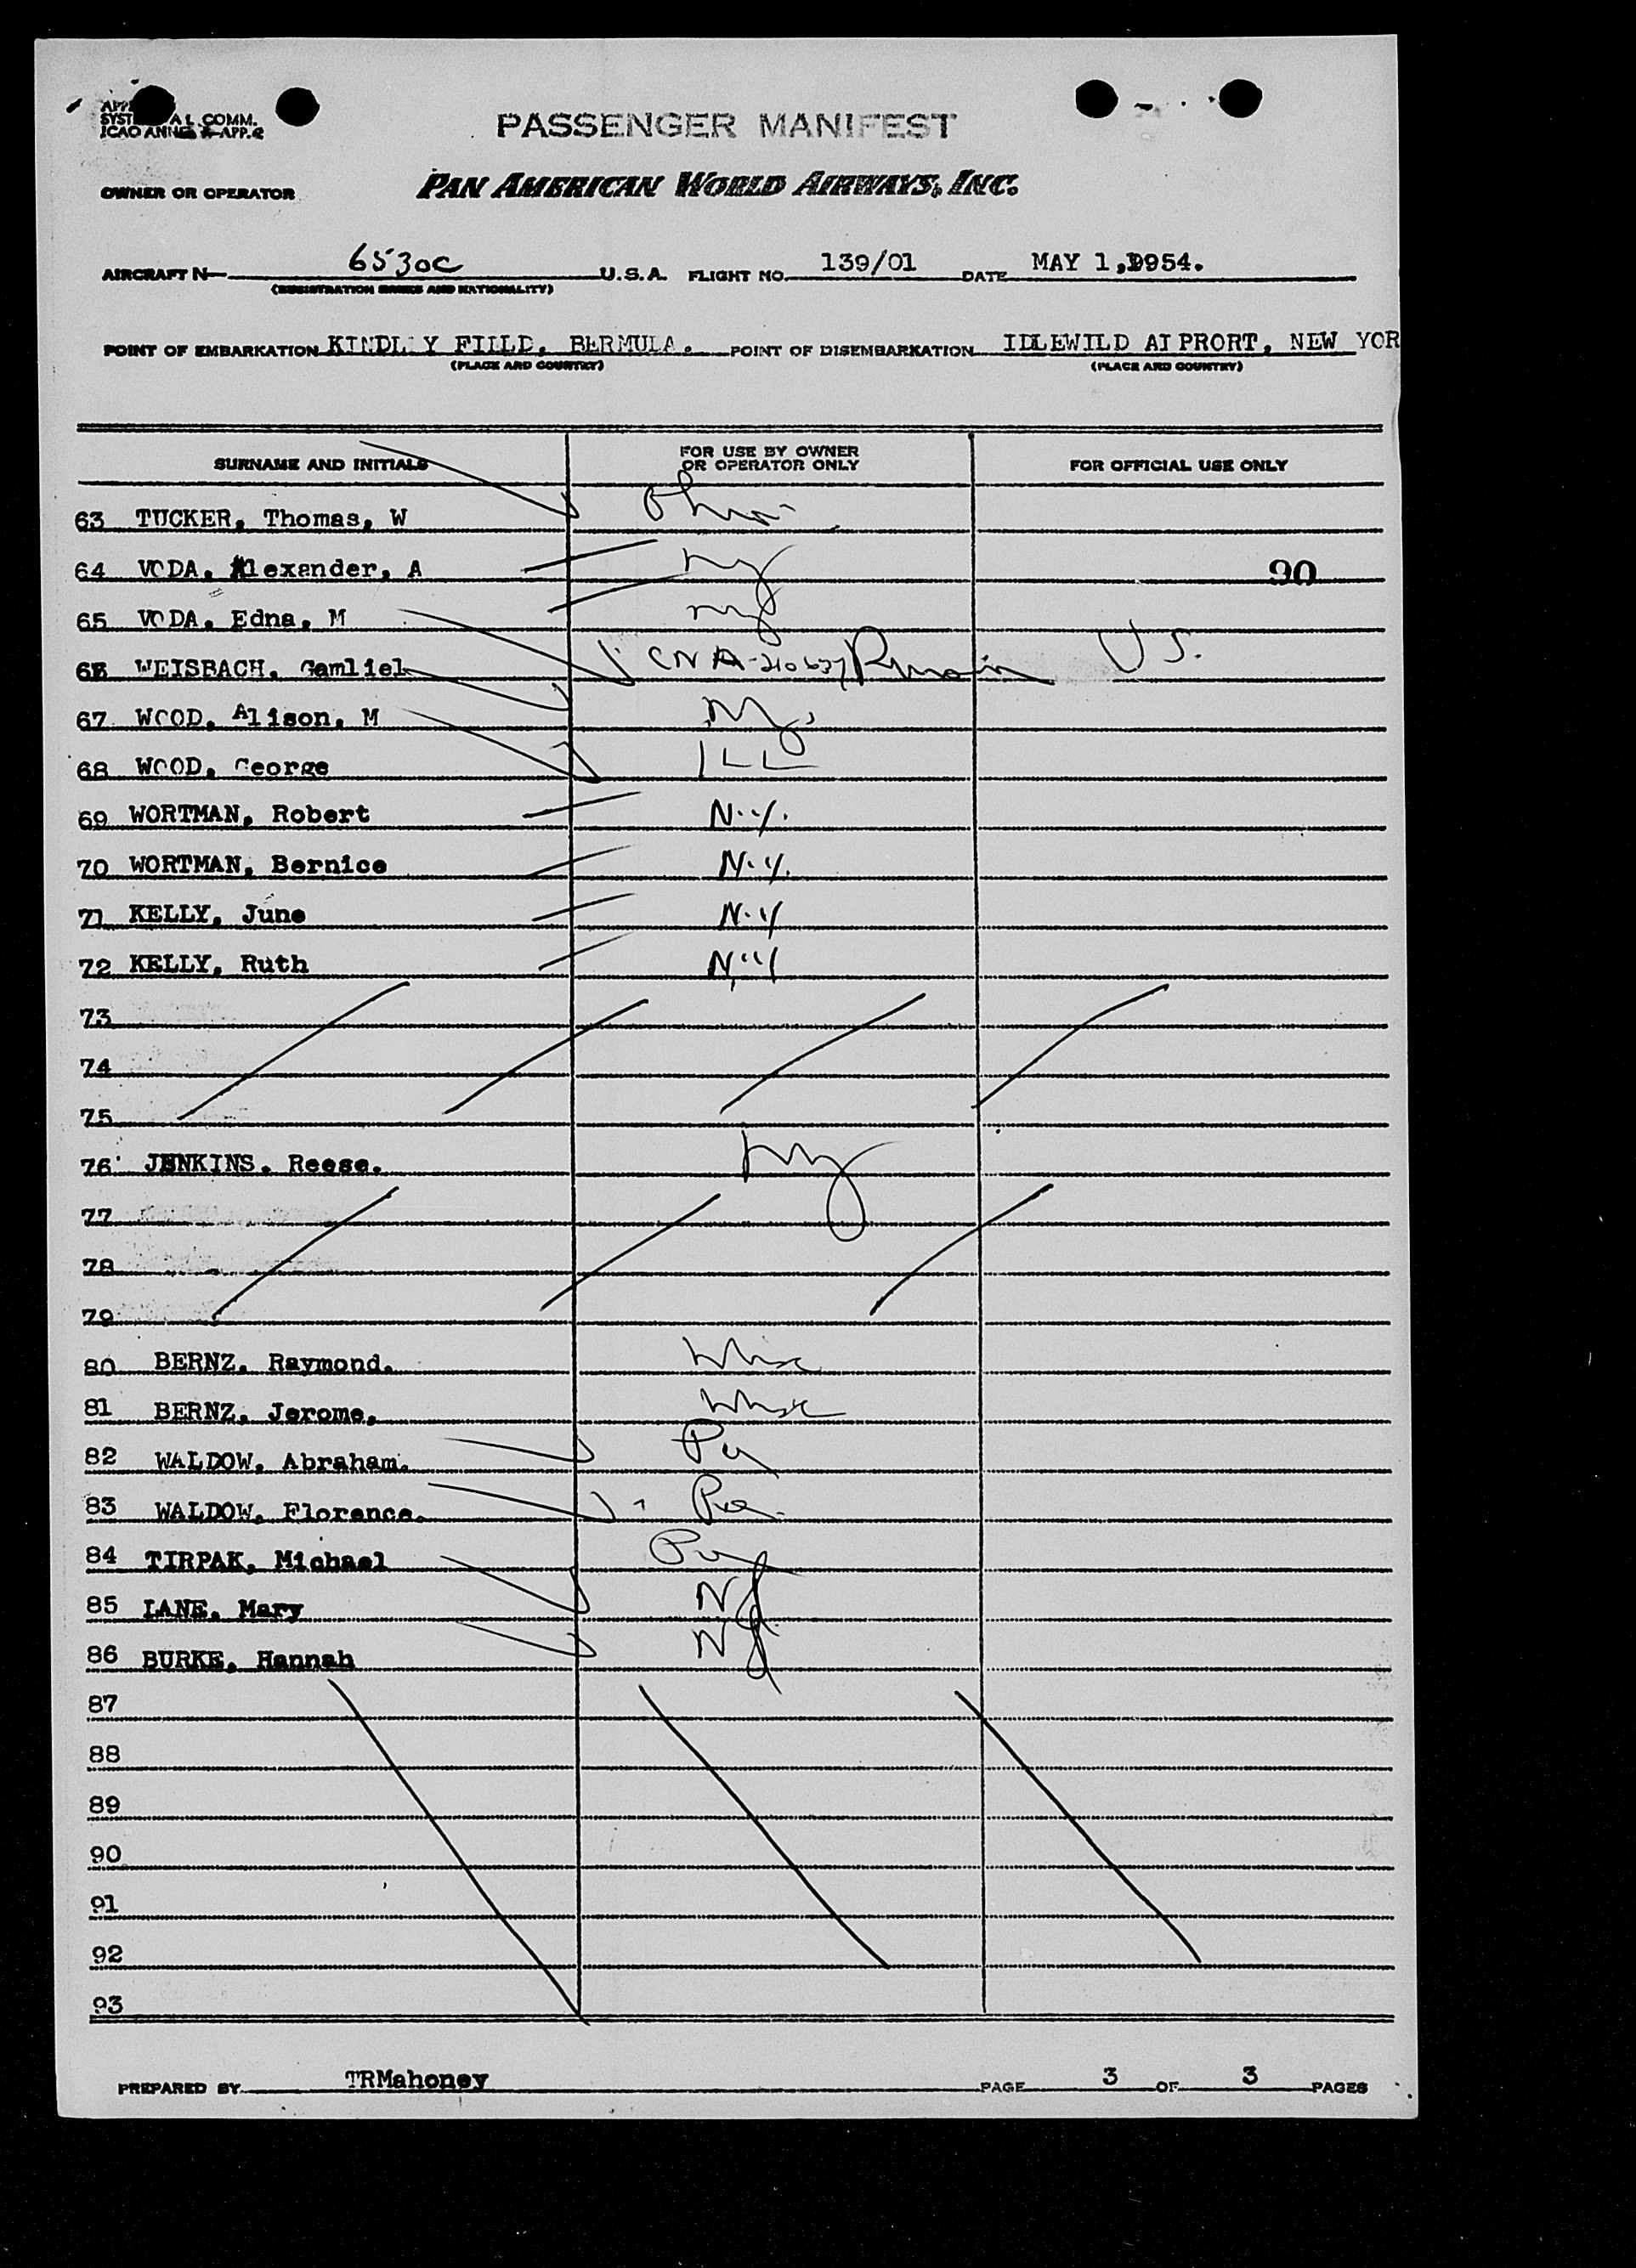 SYST AL COMM.
ICAO ANNEX APP.
PASSENGER MANIFEST
OWNER OR OPERATOR PAN AMERICAN WORLD AIRWAYS, INC.
AIRCRAFT N 6530C U.S.A. FLIGHT NO. 139/01 DATE MAY 1,1954.
(REGISTRATION MARKS AND NATIONALITY)
POINT OF EMBARKATION KINDLEY FIELD, BERMUDA. POINT OF DISEMBARKATION IDLEWILD AIPRORT, NEW YOR
(PLACE AND COUNTRY) (PLACE AND COUNTRY)
SURNAME AND INITIALS FOR USE BY OWNER OR OPERATOR ONLY FOR OFFICIAL USE ONLY
63 TUCKER, Thomas, W Ohio
64 VODA, Alexander, A ny 90
65 VODA, Edna, M ny
66 WEISBACH, Gamliel CN A-210637 Remain US.
67 WOOD, Alison, M Ny
68 WOOD, George ILL
69 WORTMAN, Robert N.Y.
70 WORTMAN, Bernice N.Y.
71 KELLY, June N.Y
72 KELLY, Ruth N.Y
73
74
75
76 JENKINS, Reese. ny
77
78
79
80 BERNZ, Raymond. Wisc
81 BERNZ, Jerome, Wisc
82 WALDOW, Abraham.
83 WALDOW, Florence.
84 TIRPAK, Michael
85 LANE, Mary NJ
86 BURKE, Hannah NJ
87
88
89
90
91
92
93
PREPARED BY TRMahoney PAGE 3 OF 3 PAGES